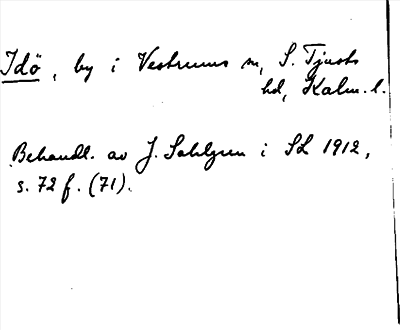 Idö, by i Vestrums sn, S. Tjusts
hd, Kalm. l.
Behandl. av J. Sahlgren i SL 1912,
s. 72 f. (71).